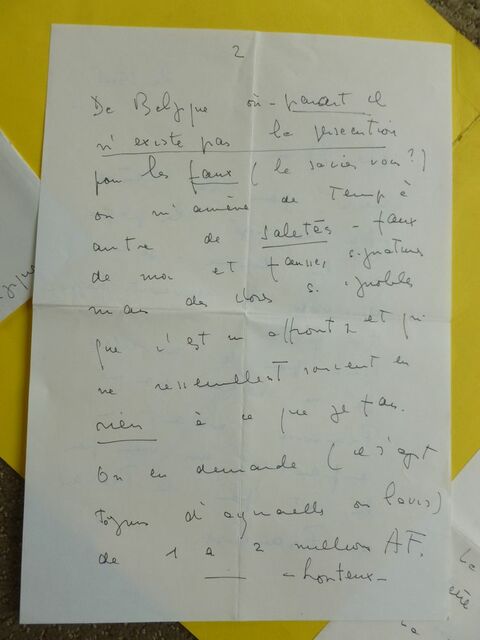 2
De Belgique où - paraît il
n'existe pas la persecution
pour les faux (le saviez vous?)
on m'amène de Temp à
autre de saletés - faux
de moi et fausses signatures
mais des choses si ignobles
que c'est un affront et qui
ne ressemblent souvent en
rien à ce que je fais.
On en demande (il s'agit
toujours d'aquarelles ou lavis)
de 1 à 2 millions AF.
- honteux -